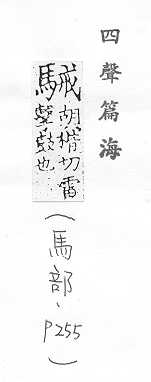 四聲篇海
駴胡楷切雷
擊鼓也
（馬部、P255）